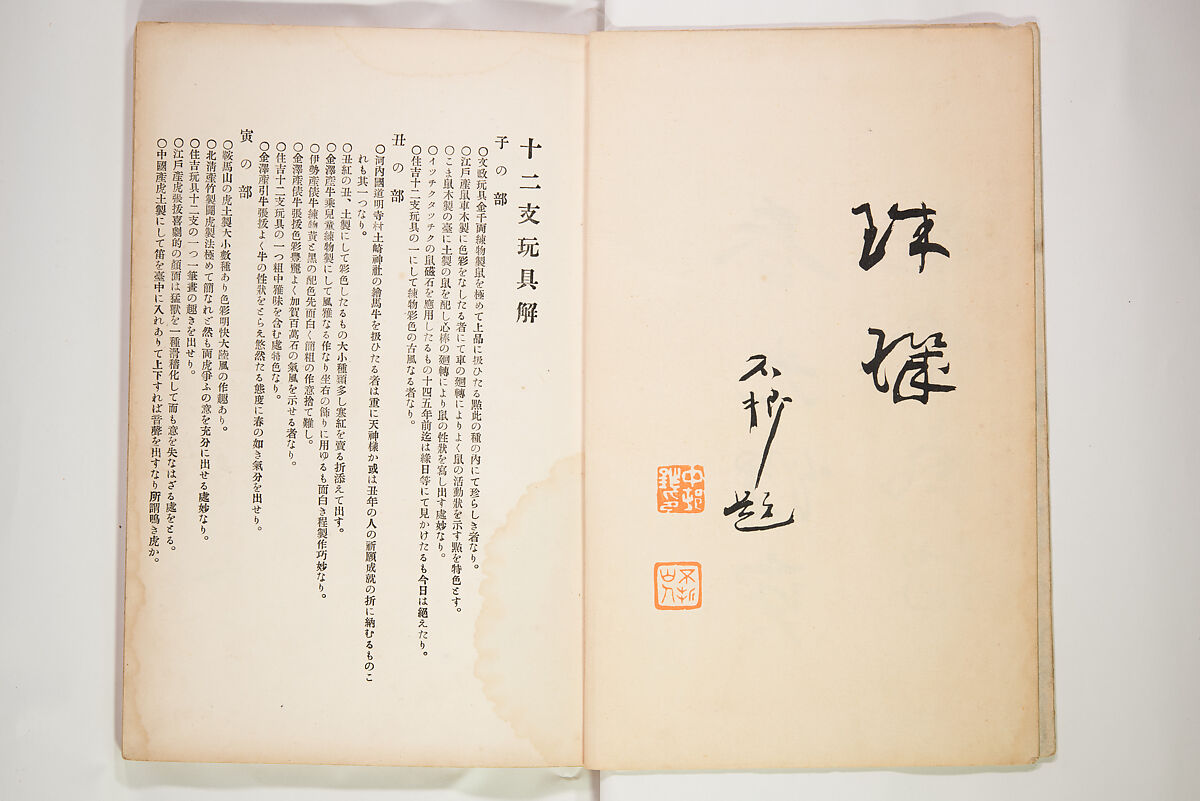 珠璣
不折題
不折山人
十二支玩具解
子の部
〇文政玩具金千両練物製鼠を極めて上品に扱ひたる點此の種の內にて珍らしき者なり。
〇江戶產鼠車木製に色彩をなしたる者にて車の廻轉によりよく鼠の活動狀を示す點を特色とす。
〇こま鼠木製の臺に土製の鼠を配し心棒の廻轉により鼠の性狀を寫し出す處妙なり。
〇イツチクタツチクの鼠磁石を應用したるもの十四五年前迄は緣日等にて見かけたるも今日は絕えたり。
〇住吉十二支玩具の一にして練物彩色の古風なる者なり。
丑の部
〇河內國道明寺村土崎神社の繪馬牛を扱ひたる者は重に天神樣か或は丑年の人の祈願成就の折に納むるものこ
れも其一つなり。
〇丑紅の丑、土製にして彩色したるもの大小種類多し寒紅を賣る折添えて出す。
〇金澤產牛乘兒童練物製にして風雅なる作なり坐右の飾りに用ゆるも面白き程製作巧妙なり。
〇伊勢產俵牛練物黃と黑の配色先面白く簡粗の作意捨て難し。
〇金澤產俵牛張拔色彩豐麗よく加賀百萬石の氣風を示せる者なり。
〇住吉十二支玩具の一つ粗中雅味を含む處特色なり。
〇金澤產引牛張拔よく牛の性狀をとらえ悠然たる態度に春の如き氣分を出せり。
寅の部
〇鞍馬山の虎土製大小數種あり色彩明快大陸風の作趣あり。
〇北淸產竹製鬪虎製法極めて簡なれど然も両虎爭ふの意を充分に出せる處妙なり。
〇住吉玩具十二支の一つ一筆畫の趣きを出せり。
〇江戶產虎張拔喜劇的の顔面は猛獸を一種滑稽化して而も意を失なはざる處をとる。
〇中國產虎土製にして笛を臺中に入れありて上下すれば音聲を出すなり所謂鳴き虎か。